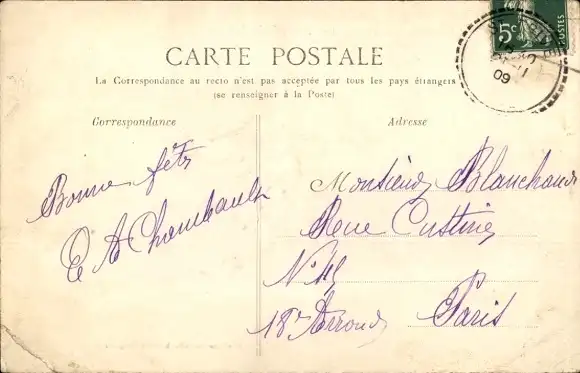 CARTE POSTALE
La Correspondance au recto n'est pas acceptée par tous les pays étrangers
(se renseigner à la Poste)
Correspondance
Adresse
Bonne fête
A Chambault
Monsieur Blanchard
Rue Custine
18e Arrond
Paris
5c
POSTES
09